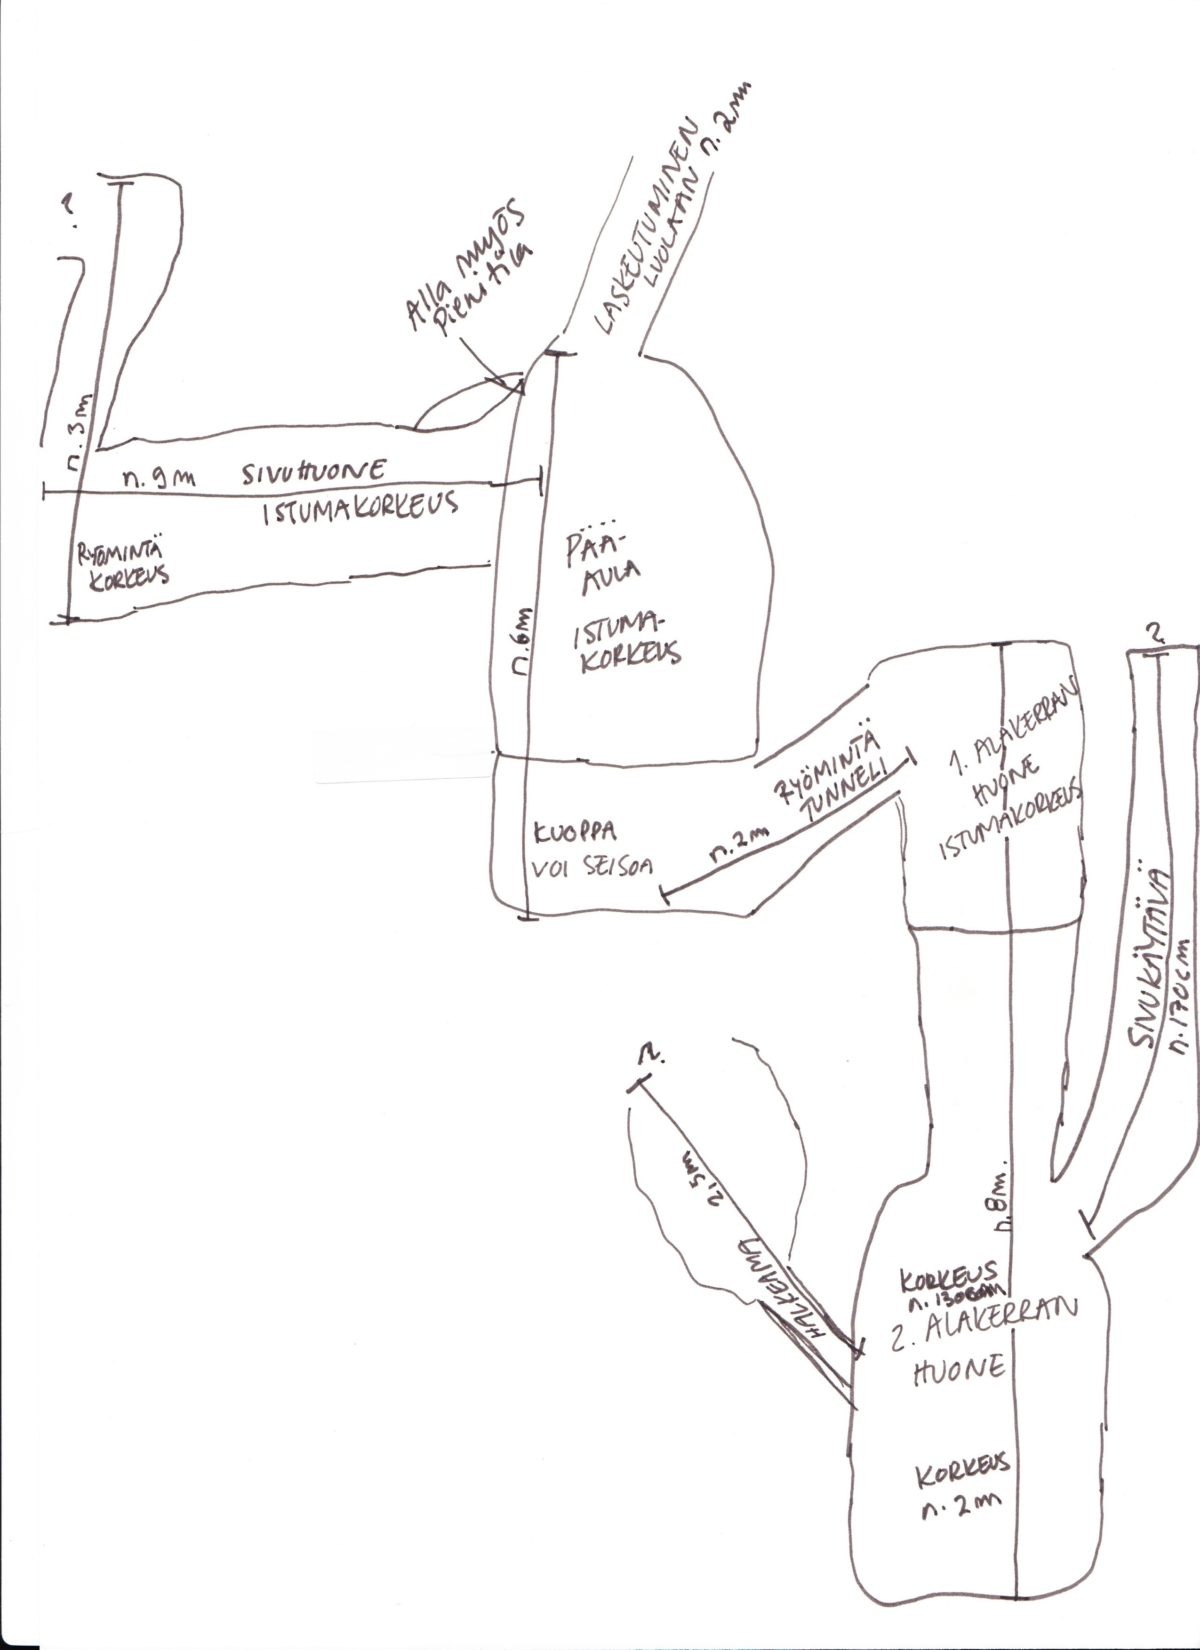 LASKEUTUMINEN
LUOLAAN n. 2m
?
Alla myös
Pieni tila
n. 3m
n. 9m SIVUHUONE
ISTUMAKORKEUS
RYÖMINTÄ
KORKEUS
PÄÄ-
AULA
ISTUMA-
KORKEUS
n. 6m
RYÖMINTÄ
TUNNELI
n. 2m
KUOPPA
VOI SEISOA
1. ALAKERRAN
HUONE
ISTUMAKORKEUS
?
SIVUKÄYTÄVÄ
n. 170cm
?
2,5m
HALKEAMA
n. 8m.
KORKEUS
n. 130cm
2. ALAKERRAN
HUONE
KORKEUS
n. 2m